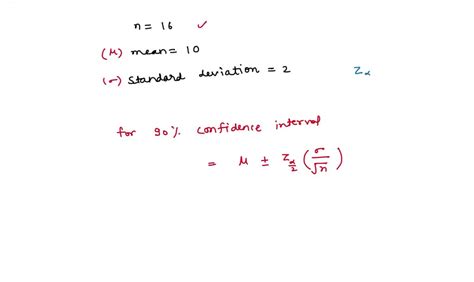 n = 16 ✓
(μ) mean = 10
(σ) standard deviation = 2 Zα
for 90% confidence interval
= μ ± Zα/2 (σ/√n)